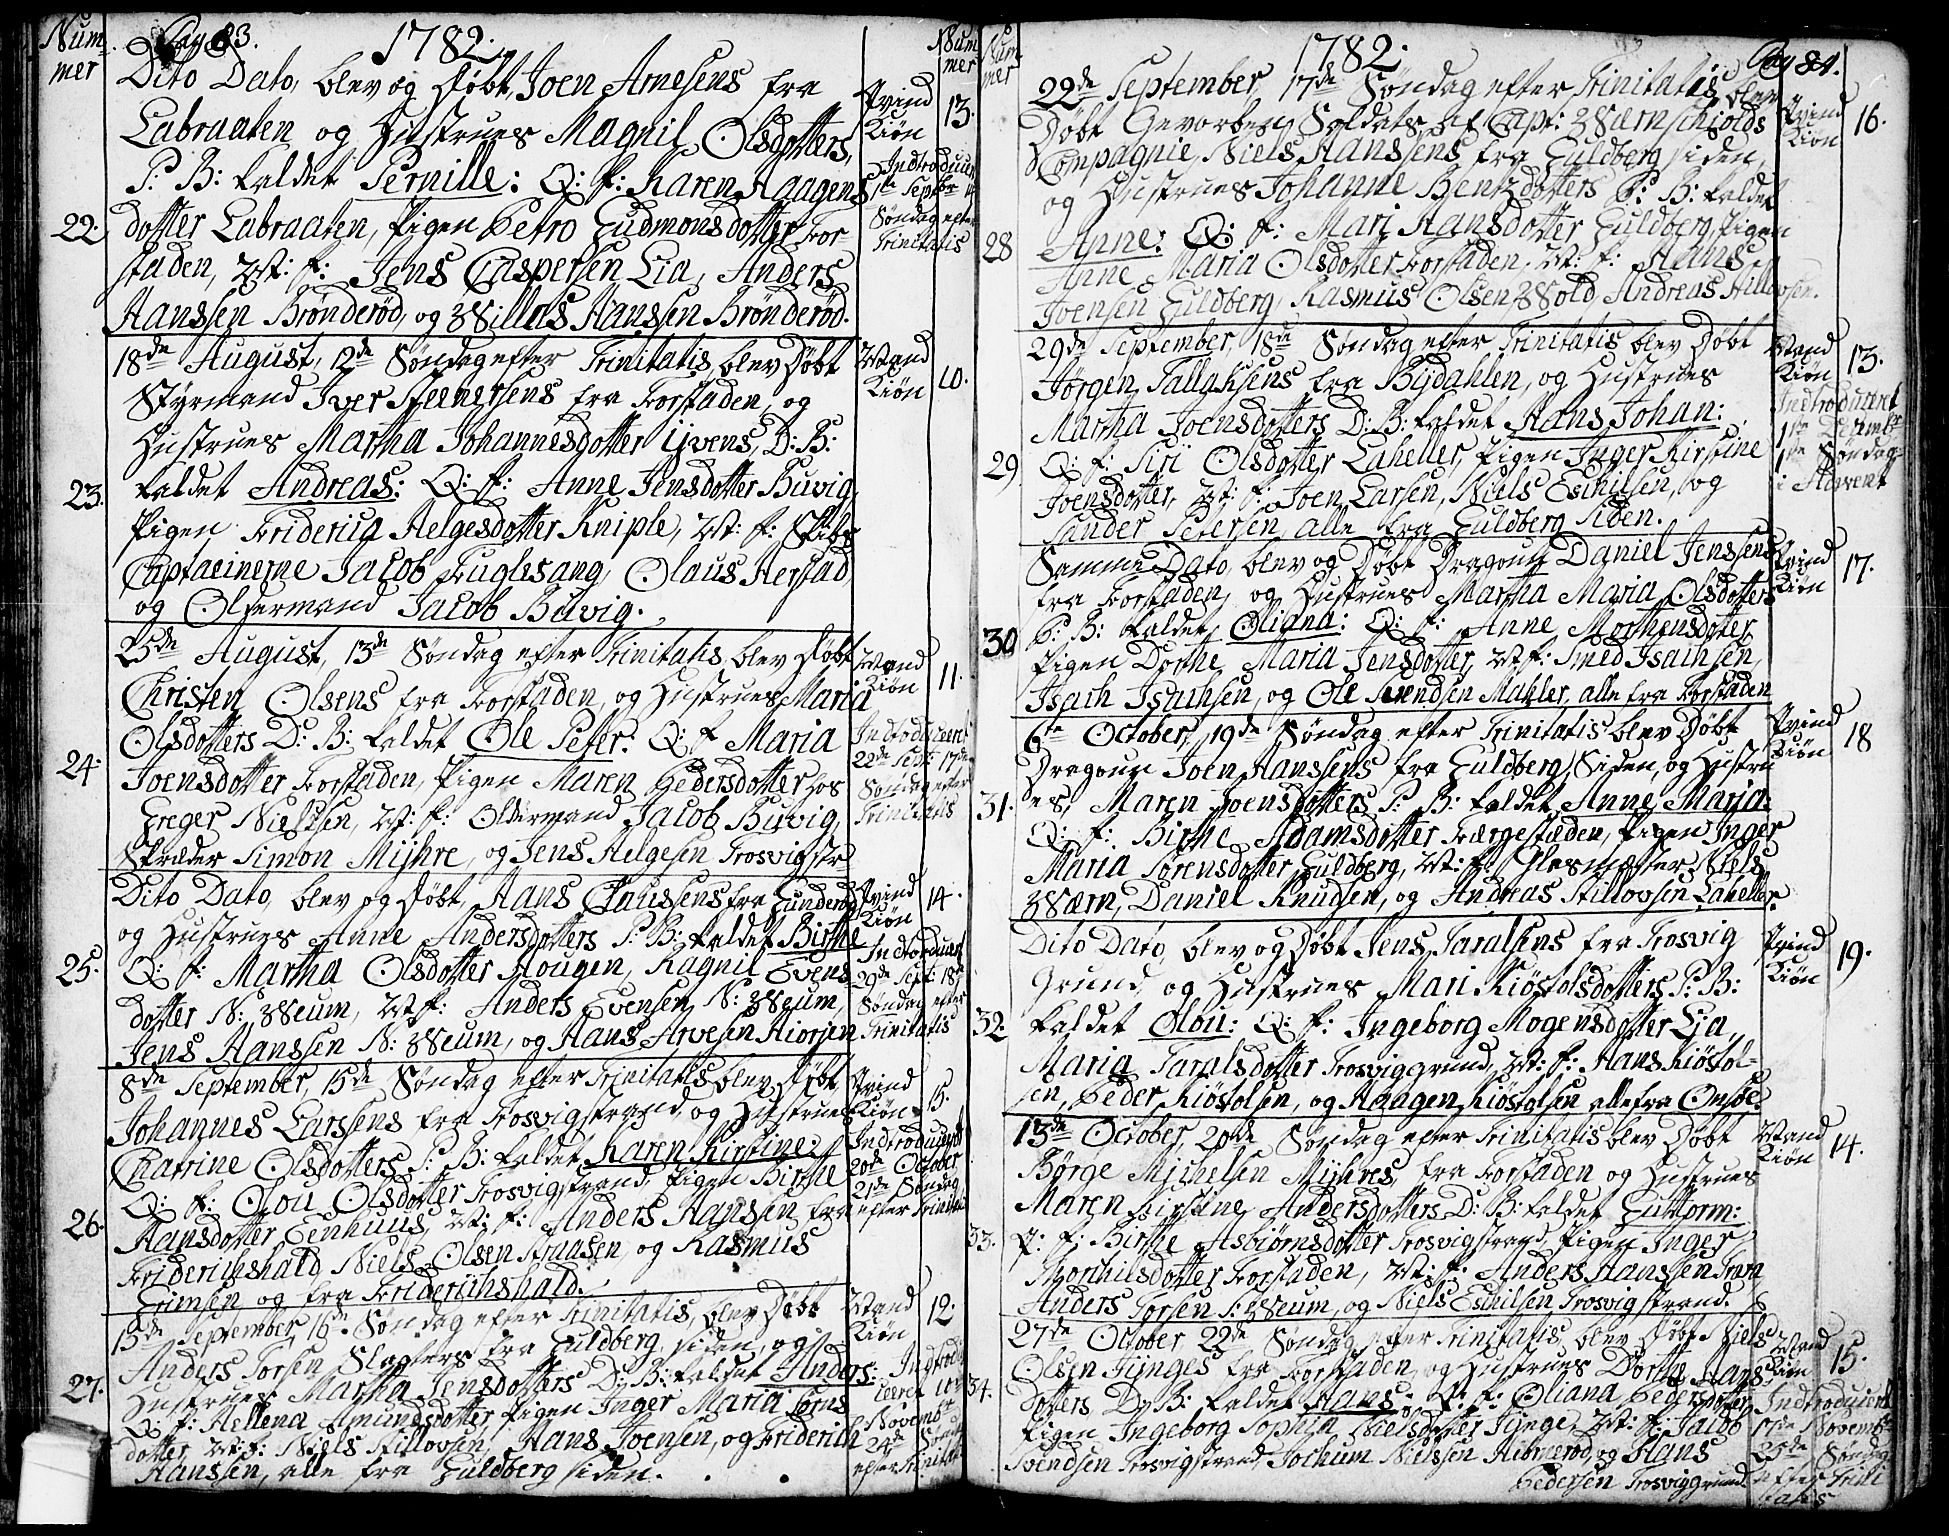 Num-
mer
Pag 83.
1782.
Num
mer
Dito Dato, blev og Døbt, Joen Arnesens fra
Labraaten og Hustrues Magnil Olsdotters,
P: B: kaldet Pernille: Q: f: Karen Haagens
22. dotter Labraaten, Pigen Petro Gudmonsdotter For-
staden, M: f: Jens Caspersen Lia, Anders
Hanssen Brønderød, og Willas Hanssen Brønderød.
Qvind
Kiøn
13.
Introducer
1ste Septbr
Søndag efter
Trinitatis
18de August, 12de Søndag efter Trinitatis, blev Døbt
Styrmand Iver Steenersens fra Forstaden, og
Hustrues Martha Johannesdotter Ijvens, D: B:
23. kaldet Andreas: Q: f: Anne Jensdotter Buvig,
Pigen Friderica Helgesdotter Kniple, M: f: Skibs
Captaeinerne Jacob Fuglesang, Olaus Herstad
og Oldermand Jacob Buvig.
Mand
Kiøn
10.
25de August, 13de Søndag efter Trinitatis, blev Døbt
Christen Olsens fra Forstaden, og Hustrues Maria
Olsdotters D: B: kaldet Ole Peter: Q: f Maria
24. Joensdotter Forstaden, Pigen Maren Pedersdotter hos
Greger Nielssen, M: f: Oldermand Jacob Buvig,
Skræder Simon Mijhre, og Jens Helgesen Trosvigstr
Mand
Kiøn
11.
Indtroduceret
22de Sept: 17de
Søndag efter
Trinitatis
Dito Dato, blev og Døbt, Hans Claussens fra Gunderød
og Hustrues Anne Andersdotters P: B: kaldet Birthe
25. Q: f: Martha Olsdotter Hougen, Ragnil Evens
dotter N: Weum, M: f: Anders Evensen N: Weum,
Jens Hanssen N: Weum, og Hans Arvesen Hiorsen
Qvind
Kiøn
14.
Indtroduceret
29de Sept: 18de
Søndag efter
Trinitatis
8de September, 15de Søndag efter Trinitatis blev Døbt
Johannes Larssens fra Trosvigstrand, og Hustrues
Chatrine Olsdotters P: B: kaldet Karen Kirstine:
Q: f: Olou Olsdotter Trosvigstrand, Pigen Birthe
26. Hansdotter Eenhuus, M: f: Anders Hansen fra
Friderichshald, Niels Olsen Struasen, og Rasmus
Grimsen og fra Friderichshald.
Qvind
Kiøn
15.
Indtroduceret
20de October
21de Søndag
efter Trinitat
15de September, 16de Søndag efter Trinitatis, blev Døbt
Anders Torsen Slagters fra Guldberg siden, og
27. Hustrues Martha Jensdotters D: B: kaldet Anders:
Q: f: Hellena Amundsdotter, Pigen Inger Maria Torns
dotter, M: f: Niels Hillovsen, Hans Joensen, og Friderich
Hanssen, alle fra Guldberg siden.
Mand
Kiøn
12.
Indtrodu
ceret 10de
Novembr
24de Sønd
efter Trinitat
Num
mer
1782.
Pag 84.
22de September, 17de Søndag efter Trinitatis blev
Døbt Gevorben Soldats af Capt: Wærnschiolds
Compagnie, Niels Hanssens fra Guldberg siden,
og Hustrues Johanne Bentzdotters P: B: kaldet
28 Anne: Q: f: Mari Hansdotter Guldberg, Pigen
Anne Maria Olsdotter Forstaden, M: f: Hans
Joensen Guldberg, Rasmus Olsen Wold, Andreas Hillovsen.
Qvind
Kiøn
16.
29de September, 18de Søndag efter Trinitatis blev Døbt
Jørgen Tallaksens fra Bijdahlen, og Hustrues
Martha Joensdotters D: B: kaldet Hans Johan:
29 Q: f: Siri Olsdotter Laheller, Pigen Inger Kirstine
Joensdotter, M: f: Joen Larsen, Niels Eschilsen, og
Sander Petersen alle fra Guldberg Siden.
Mand
Kiøn
13.
Indtroduceret
1ste Decembr
1ste Søndag
i Advent
Samme Dato, blev og Døbt Dragoun Daniel Jenssens
fra Forstaden, og Hustrues Martha Maria Olsdotters
30 P: B: kaldet Oliana: Q: f: Anne Morthensdotter
Pigen Dorthe Maria Jensdotter, M: f: Smed Isachsen,
Isach Isachsen, og Ole Svendsen Mahler, alle fra Forstaden
Qvind
Kiøn
17.
6te October, 19de Søndag efter Trinitatis blev Døbt
Dragoun Joen Hanssens fra Guldberg Siden, og Hustru
31. es, Maren Joensdotters P: B: kaldet Anne Maria:
Q: f: Birthe Adamsdotter Færgestæden, Pigen Inger
Maria Sørensdotter Guldberg, M: f: Glasmester Niels
Wærn, Daniel Knudsen, og Andreas Hillovsen Laheller.
Qvind
Kiøn
18
Dito Dato, blev og Døbt Jens Taralsens fra Trosvig
Grund, og Hustrues Mari Kiøstolsdotters P: B:
32. kaldet Olou: Q: f: Ingeborg Mogensdotter Lia
Maria Taralsdotter Trosviggrund, M: f: Hans Kiøstol-
sen, Peder Kiøstolsen, og Haagen Kiøstolsen alle fra Onsøe.
Qvind
Kiøn
19.
13de October, 20de Søndag efter Trinitatis blev Døbt
Børge Mjchelsen Mijhres, fra Forstaden og Hustrues
Maren Kirstine Andersdotters D: B: kaldet Guttorm:
33. Q: f: Birthe Asbiørnsdotter Trosvigstrand, Pigen Inger
Thorchilsdotter Forstaden, M: f: Anders Hanssen
Anders Torsen S: Weum, og Niels Eschilsen Trosvigstrand.
Mand
Kiøn
14.
27de October 22de Søndag efter Trinitatis, blev Døbt Niels
Olsen Tijnges fra Forstaden, og Hustrues Dorthe Hans
34. dotters D: B: kaldet Hans: Q: f: Oliana Pedersdotter
Pigen Ingeborg Sophia Nielsdotter Tijnge, M: f: Jacob
Svendsen Trosvigstrand, Jochum Nielssen Ribnerød, og Hans
Pedersen Trosviggrund.
Mand
Kiøn
15.
Indtroduceret
17de Novembr
25de Søndag
efter Trini
tatis